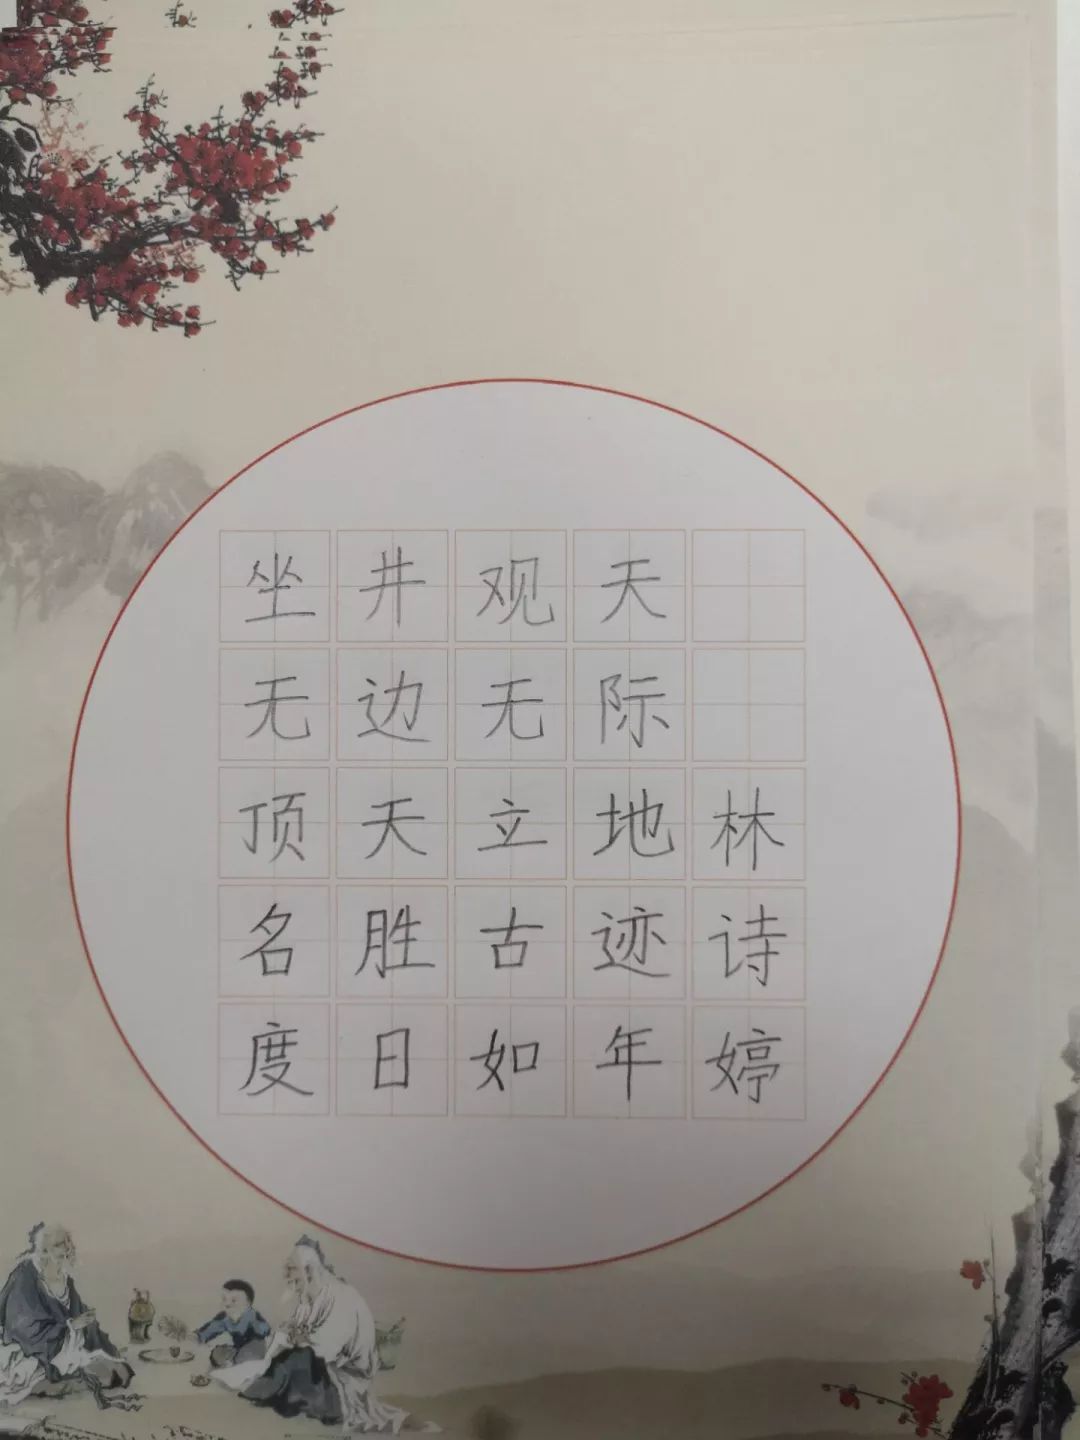 坐井观天
无边无际
顶天立地林
名胜古迹诗
度日如年婷